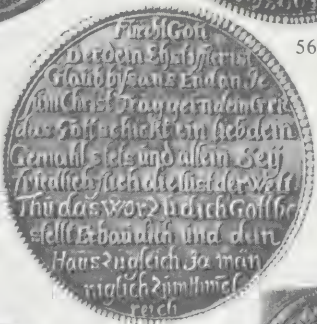 Fürcht Gott
Der dein Ehstyffter ist
Glaub bys ans End an Je
sum Christ Trag gern dein Creütz
das Gott schickt ein lieb dein
Gemahl stets und allein Seÿ
fridlich flich die lüst der Welt
Thü das worzü dich Gott be
stellt Erbaü dich und dein
Haüs zügleich Ja män
niglich züm Himel
reich
56